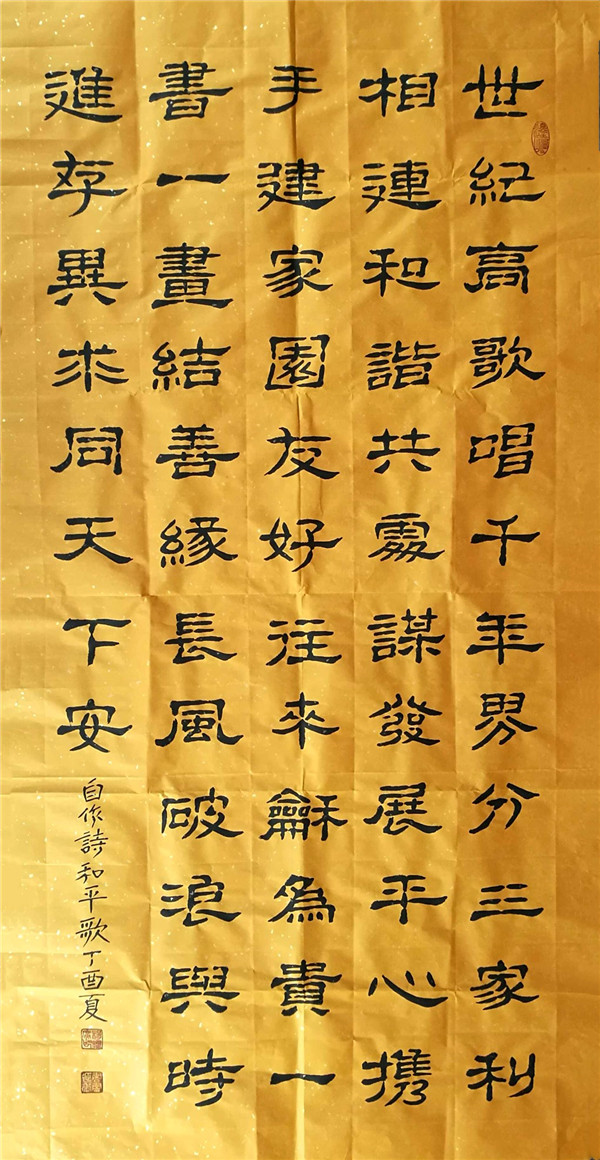 世紀高歌唱千年界分三家利
相連和諧共處謀發展平心携
手建家園友好往來龢為貴一
書一畫結善緣長風破浪與時
進存異求同天下安
自作詩和平歌丁酉夏